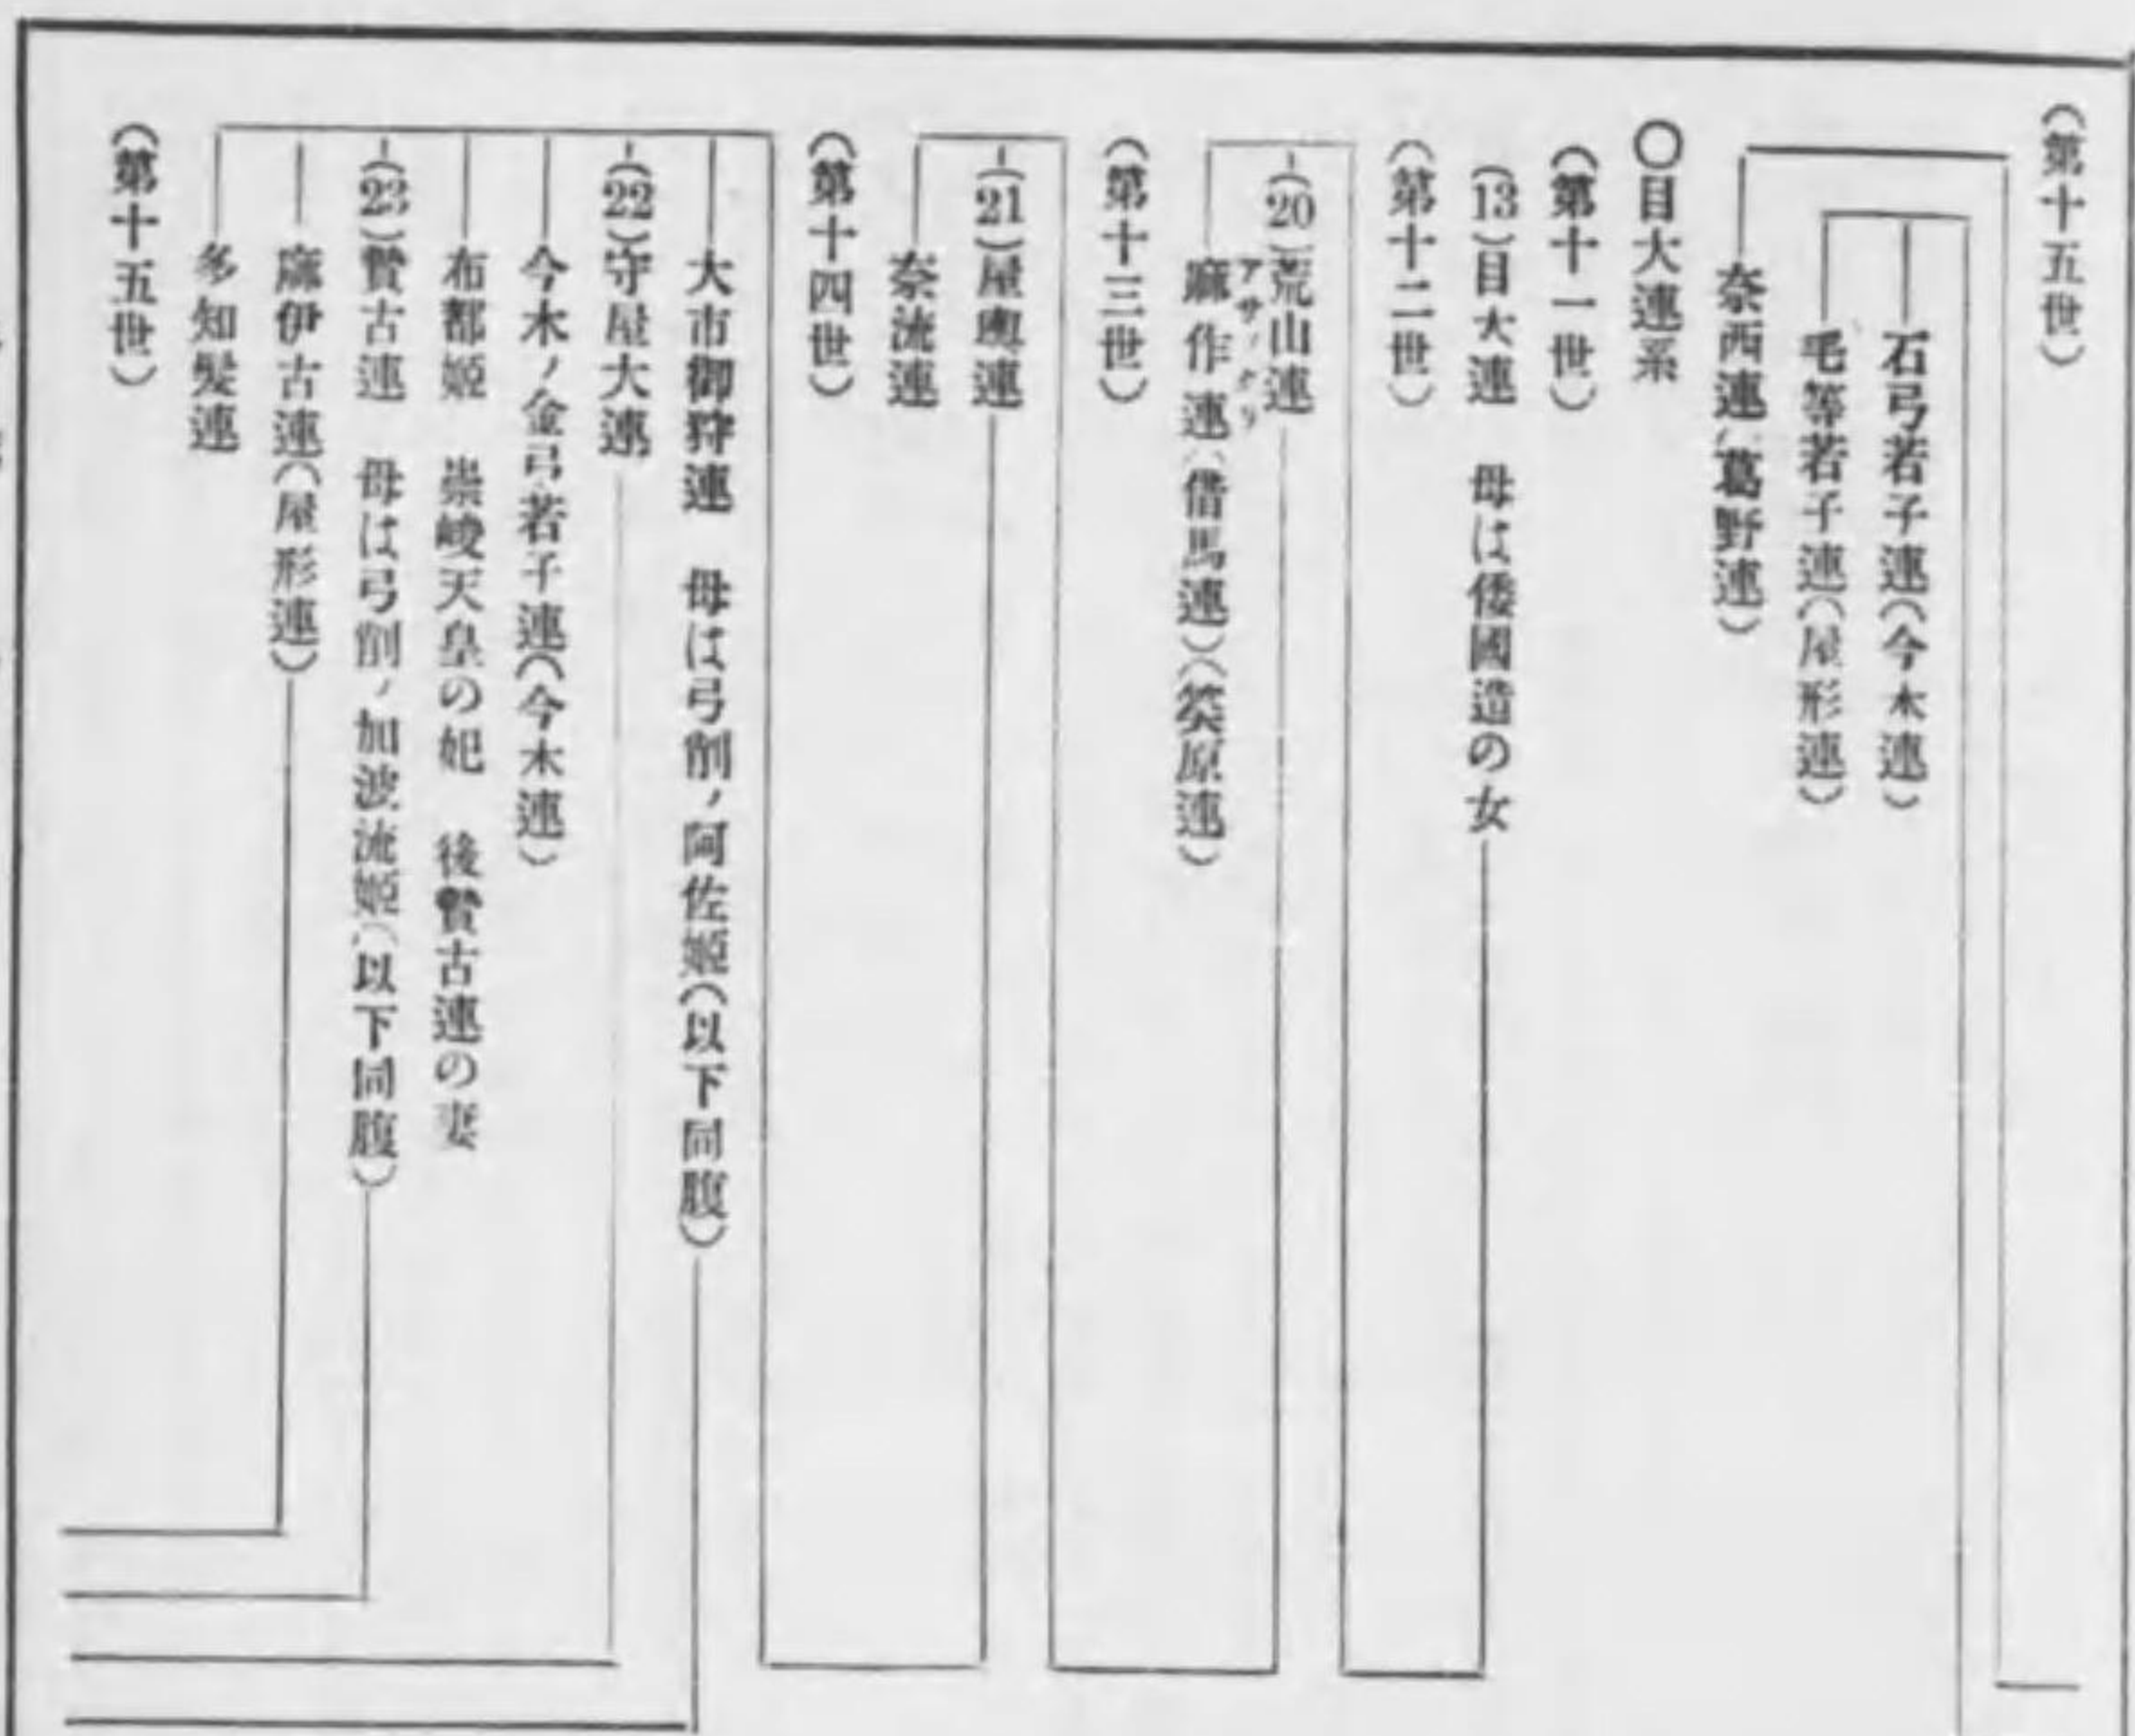 (第十五世)
石弓若子連(今木連)
毛等若子連(屋形連)
奈西連(葛野連)
〇目大連系
(第十一世)
(13)目大連 母は倭國造の女
(第十二世)
(20)荒山連
麻作連(借馬連)(笶原連)
(第十三世)
(21)屋輿連
奈流連
(第十四世)
大市御狩連 母は弓削ノ阿佐姬(以下同腹)
(22)守屋大連
今木ノ金弓若子連(今木連)
布都姬 崇峻天皇の妃 後贄古連の妻
(23)贄古連 母は弓削ノ加波流姬(以下同腹)
麻伊古連(屋形連)
多知髮連
(第十五世)